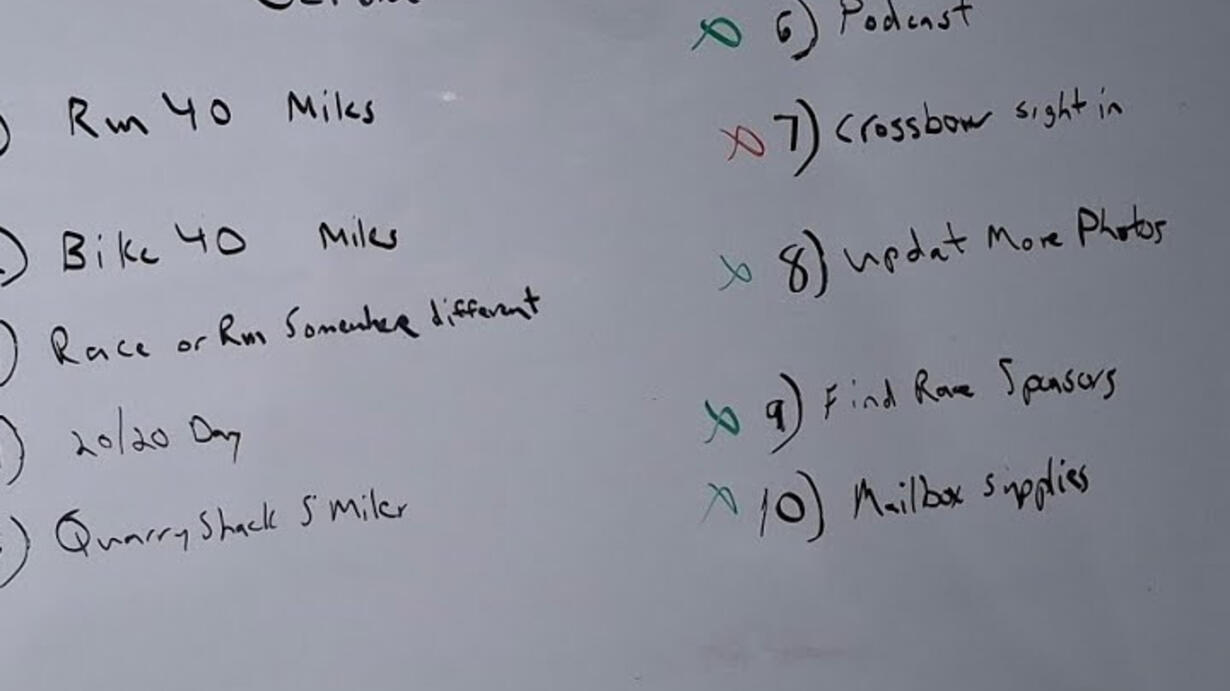 6) Podcast
) Run 40 Miles
7) Crossbow sight in
) Bike 40 Miles
8) updat More Photos
) Race or Run Somewhere different
9) Find Race Sponsors
) 20/20 Day
10) Mailbox supplies
) Quarry Shack 5 Miler